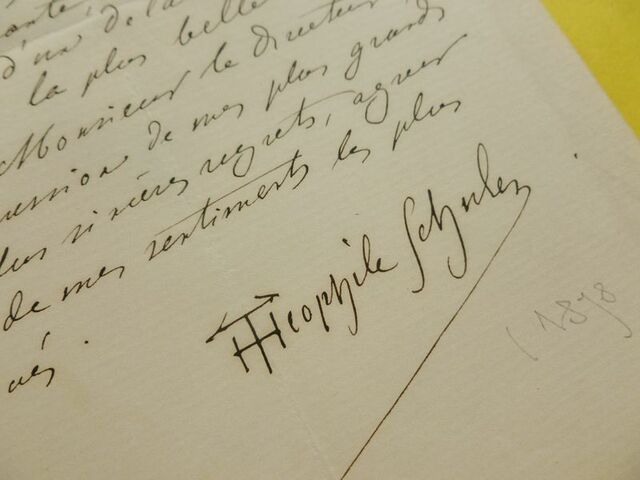 d'un de l'a
la plus belle
Monsieur le directeur
ression de mes plus grands
lus sincères regrets, agréer
de mes sentiments les plus
ués.
Théophile Schuler
(1878